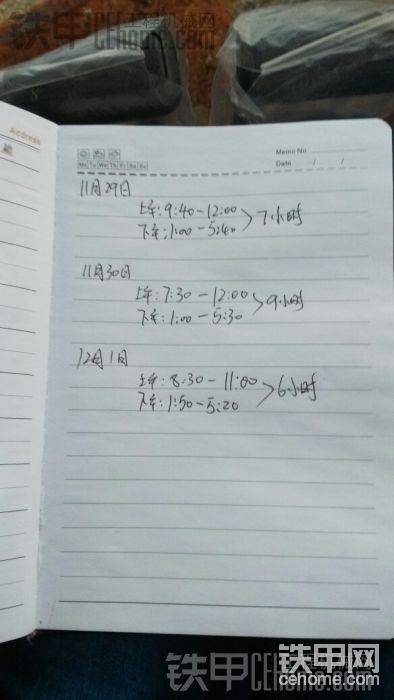 铁甲工程机械网
CEhome.com
Address
Memo No
Mo Tu We Th Fr Sa Su
Date / /
11月29日
上午:9:40-12:00
7小时
下午:1:00-5:40
11月30日
上午:7:30-12:00
9小时
下午:1:00-5:30
12月1日
上午:8:30-11:00
6小时
下午:1:50-5:20
铁甲网
cehome.com
铁甲工程机械网
CEhome.com